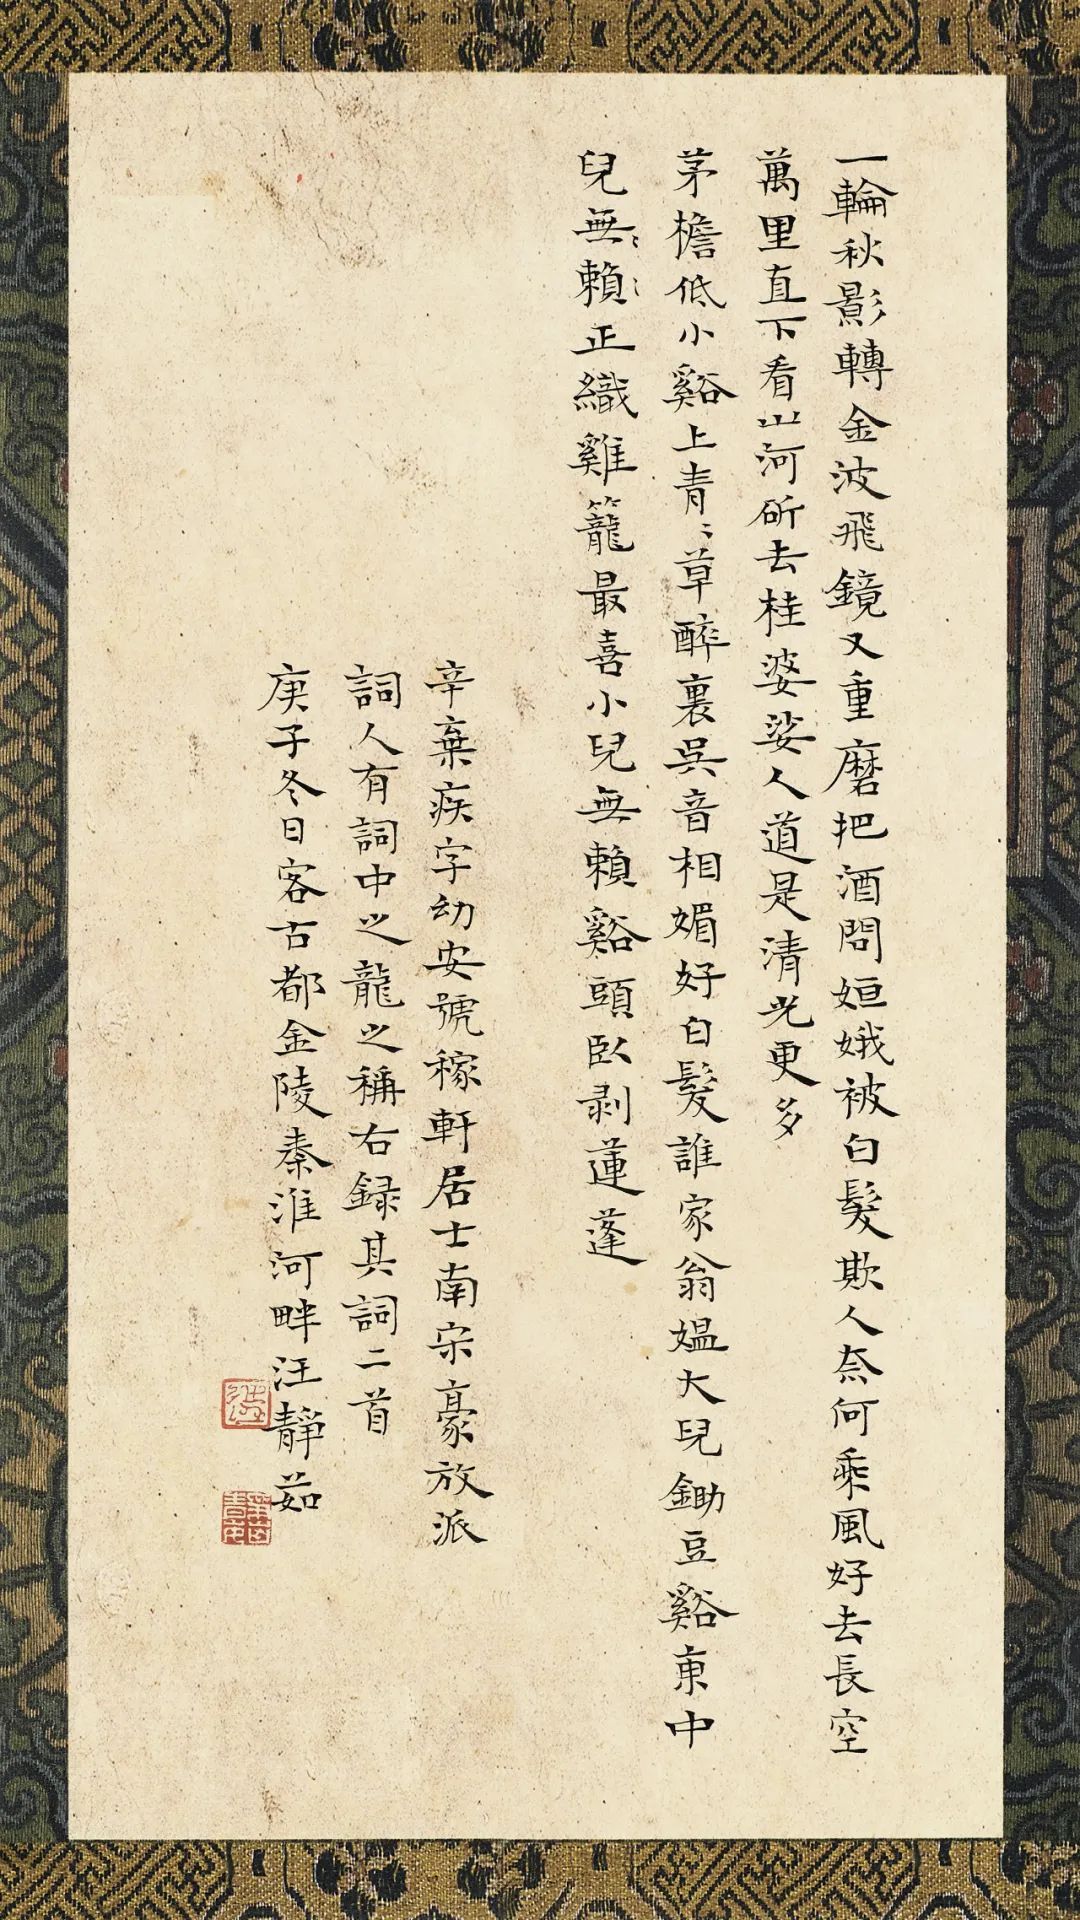 一輪秋影轉金波飛鏡又重磨把酒問姮娥被白髮欺人奈何乘風好去長空
萬里直下看山河斫去桂婆娑人道是清光更多
茅檐低小谿上青〻草醉裏吳音相媚好白髮誰家翁媼大兒鋤豆谿東中
兒無賴正織雞籠最喜小兒無賴谿頭臥剥蓮蓬
辛棄疾字幼安號稼軒居士南宋豪放派
詞人有詞中之龍之稱右録其詞二首
庚子冬日客古都金陵秦淮河畔汪靜茹